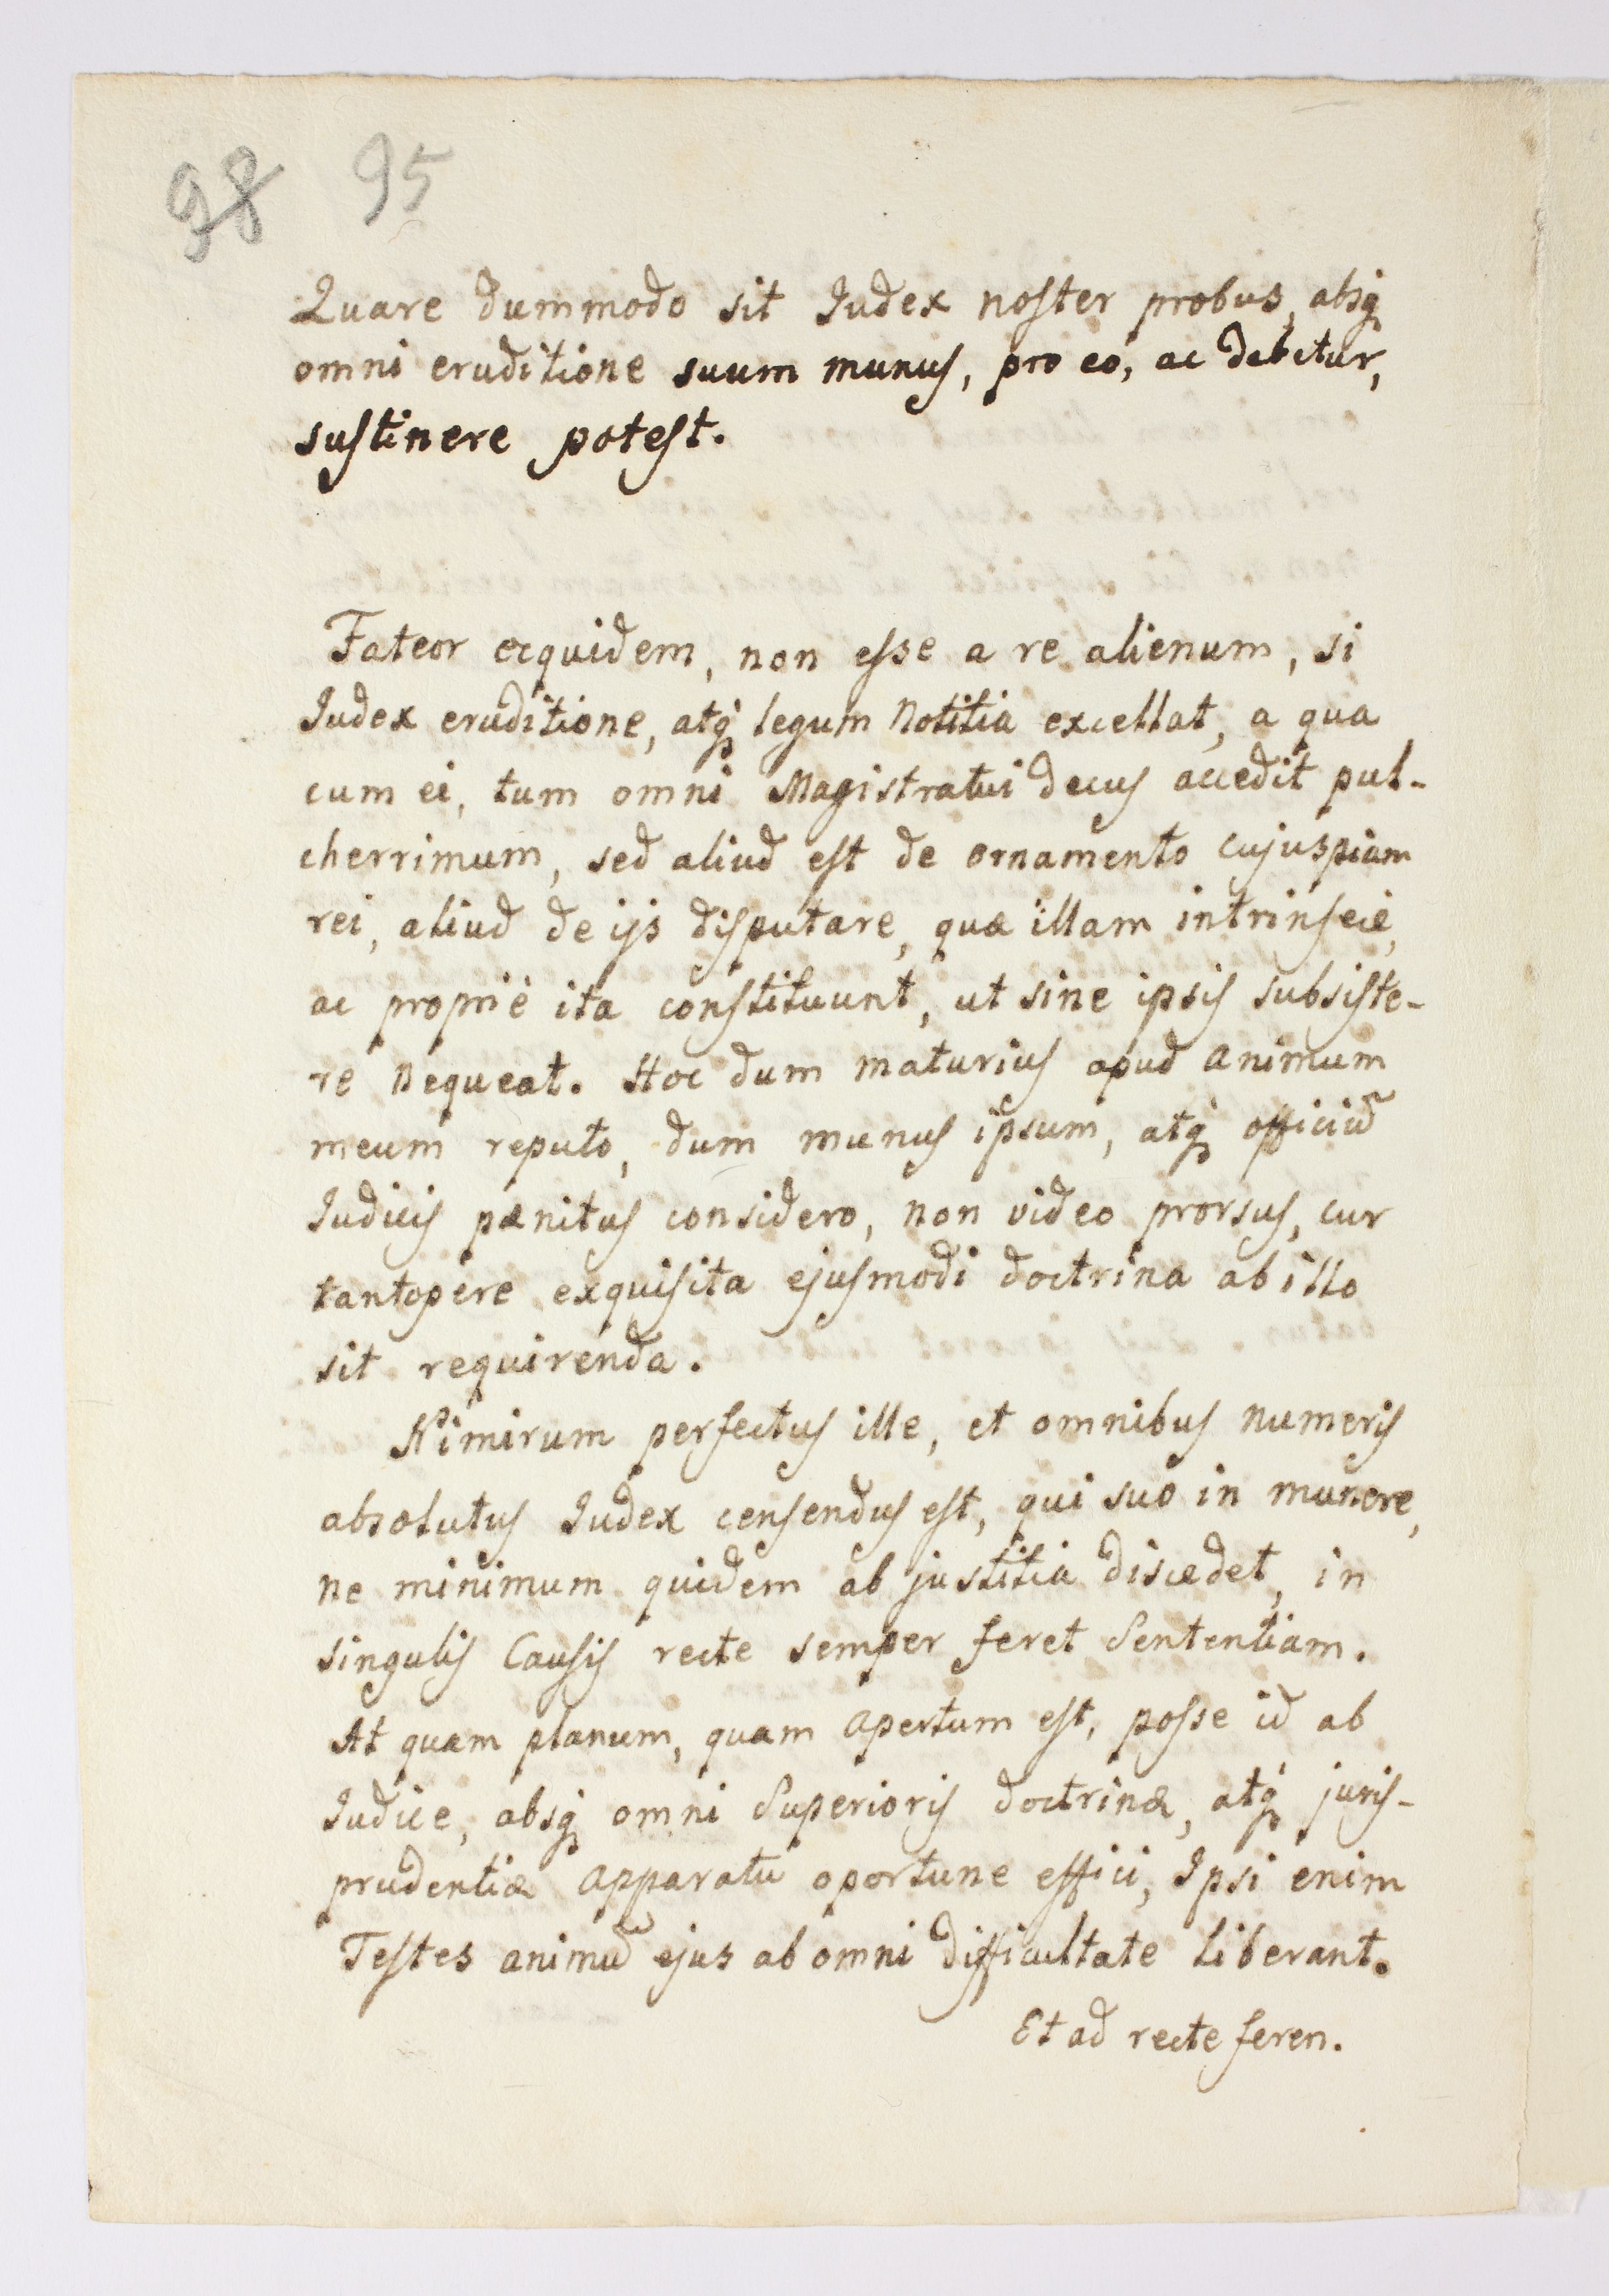 98 95
Quare dummodo sit Judex noster probus, absq́
omni eruditione suum munus, pro eo, ac debetur,
sustinere potest.
Fateor ecquidem, non esse a re alienum, si
Judex eruditione, atq́ legum Notitia excellat, a qua
cum ei, tum omni Magistratui decus accedit pul-
cherrimum, sed aliud est de ornamento cujuspiam
rei, aliud de ijs disputare, quæ illam intrinsecè,
ac propriè ita constituunt, ut sine ipsis subsiste-
re Nequeat. Hoc dum maturius apud animum
meum reputo, dum munus ipsum, atq́ officiū
Judicis pænitus considero, non video prorsus, cur
tantopere exquisita ejusmodi doctrina ab illo
sit requirenda.
Nimirum perfectus ille, et omnibus numeris
absolutus Judex censendus est, qui suo in munere,
ne minimum quidem ab justitia discedet, in
singulis Causis recte semper feret Sententiam.
At quam planum, quam apertum est, posse id ab
Judice, absq́ omni Superioris doctrinæ, atq́ juris-
prudentiæ apparatu oportune effici, Ipsi enim
Testes animū ejus ab omni difficultate liberant.
Et ad recte feren.